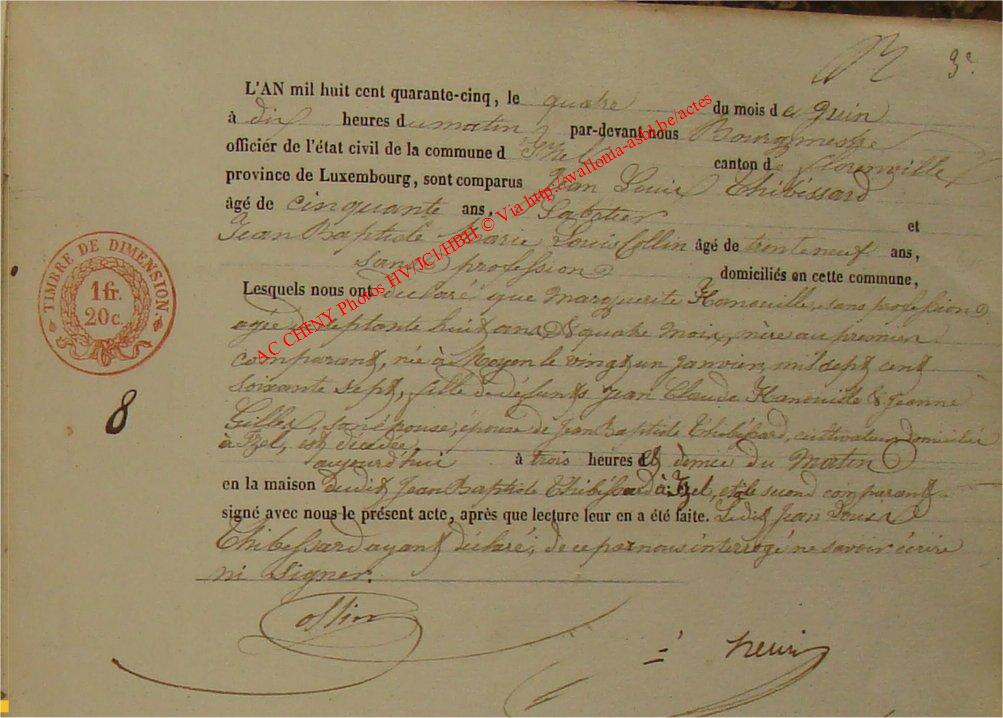 3e
L'AN mil huit cent quarante-cinq, le quatre du mois de Juin
à dix heures du matin, par-devant nous Bourgmestre
officier de l'état civil de la commune d'Izel canton de florenville
province de Luxembourg, sont comparus Jean Louis Thibessard
âgé de cinquante ans, Sabotier et
Jean Baptiste Marie Louis Collin âgé de trente neuf ans,
Sans profession domiciliés en cette commune,
Lesquels nous ont déclaré que Marguerite Hanouille, sans profession
agée de septante huit ans & quatre mois, mère au premier
comparant, née à Moyen le vingt un Janvier, mil sept cent
soixante sept, fille de défunts Jean Claude Hanouille & Jeanne
Gilles, son épouse, épouse de Jean Baptiste Thibéssard, cultivateur domicilié
à Izel, est décédée
aujourd'hui à trois heures & demie du Matin
en la maison dudit Jean Baptiste Thibéssard à Izel, et le second comparant
signé avec nous le présent acte, après que lecture leur en a été faite. Ledit Jean Louis
Thibessard ayant déclaré, de ce par nous interrogé ne savoir écrire
ni Signer.
Collin
TIMBRE DE DIMENSION
1 fr.
20 c.
8
AC CHINY Photos HV/JCl/HBH © Via http://wallonia-asbl.be/actes